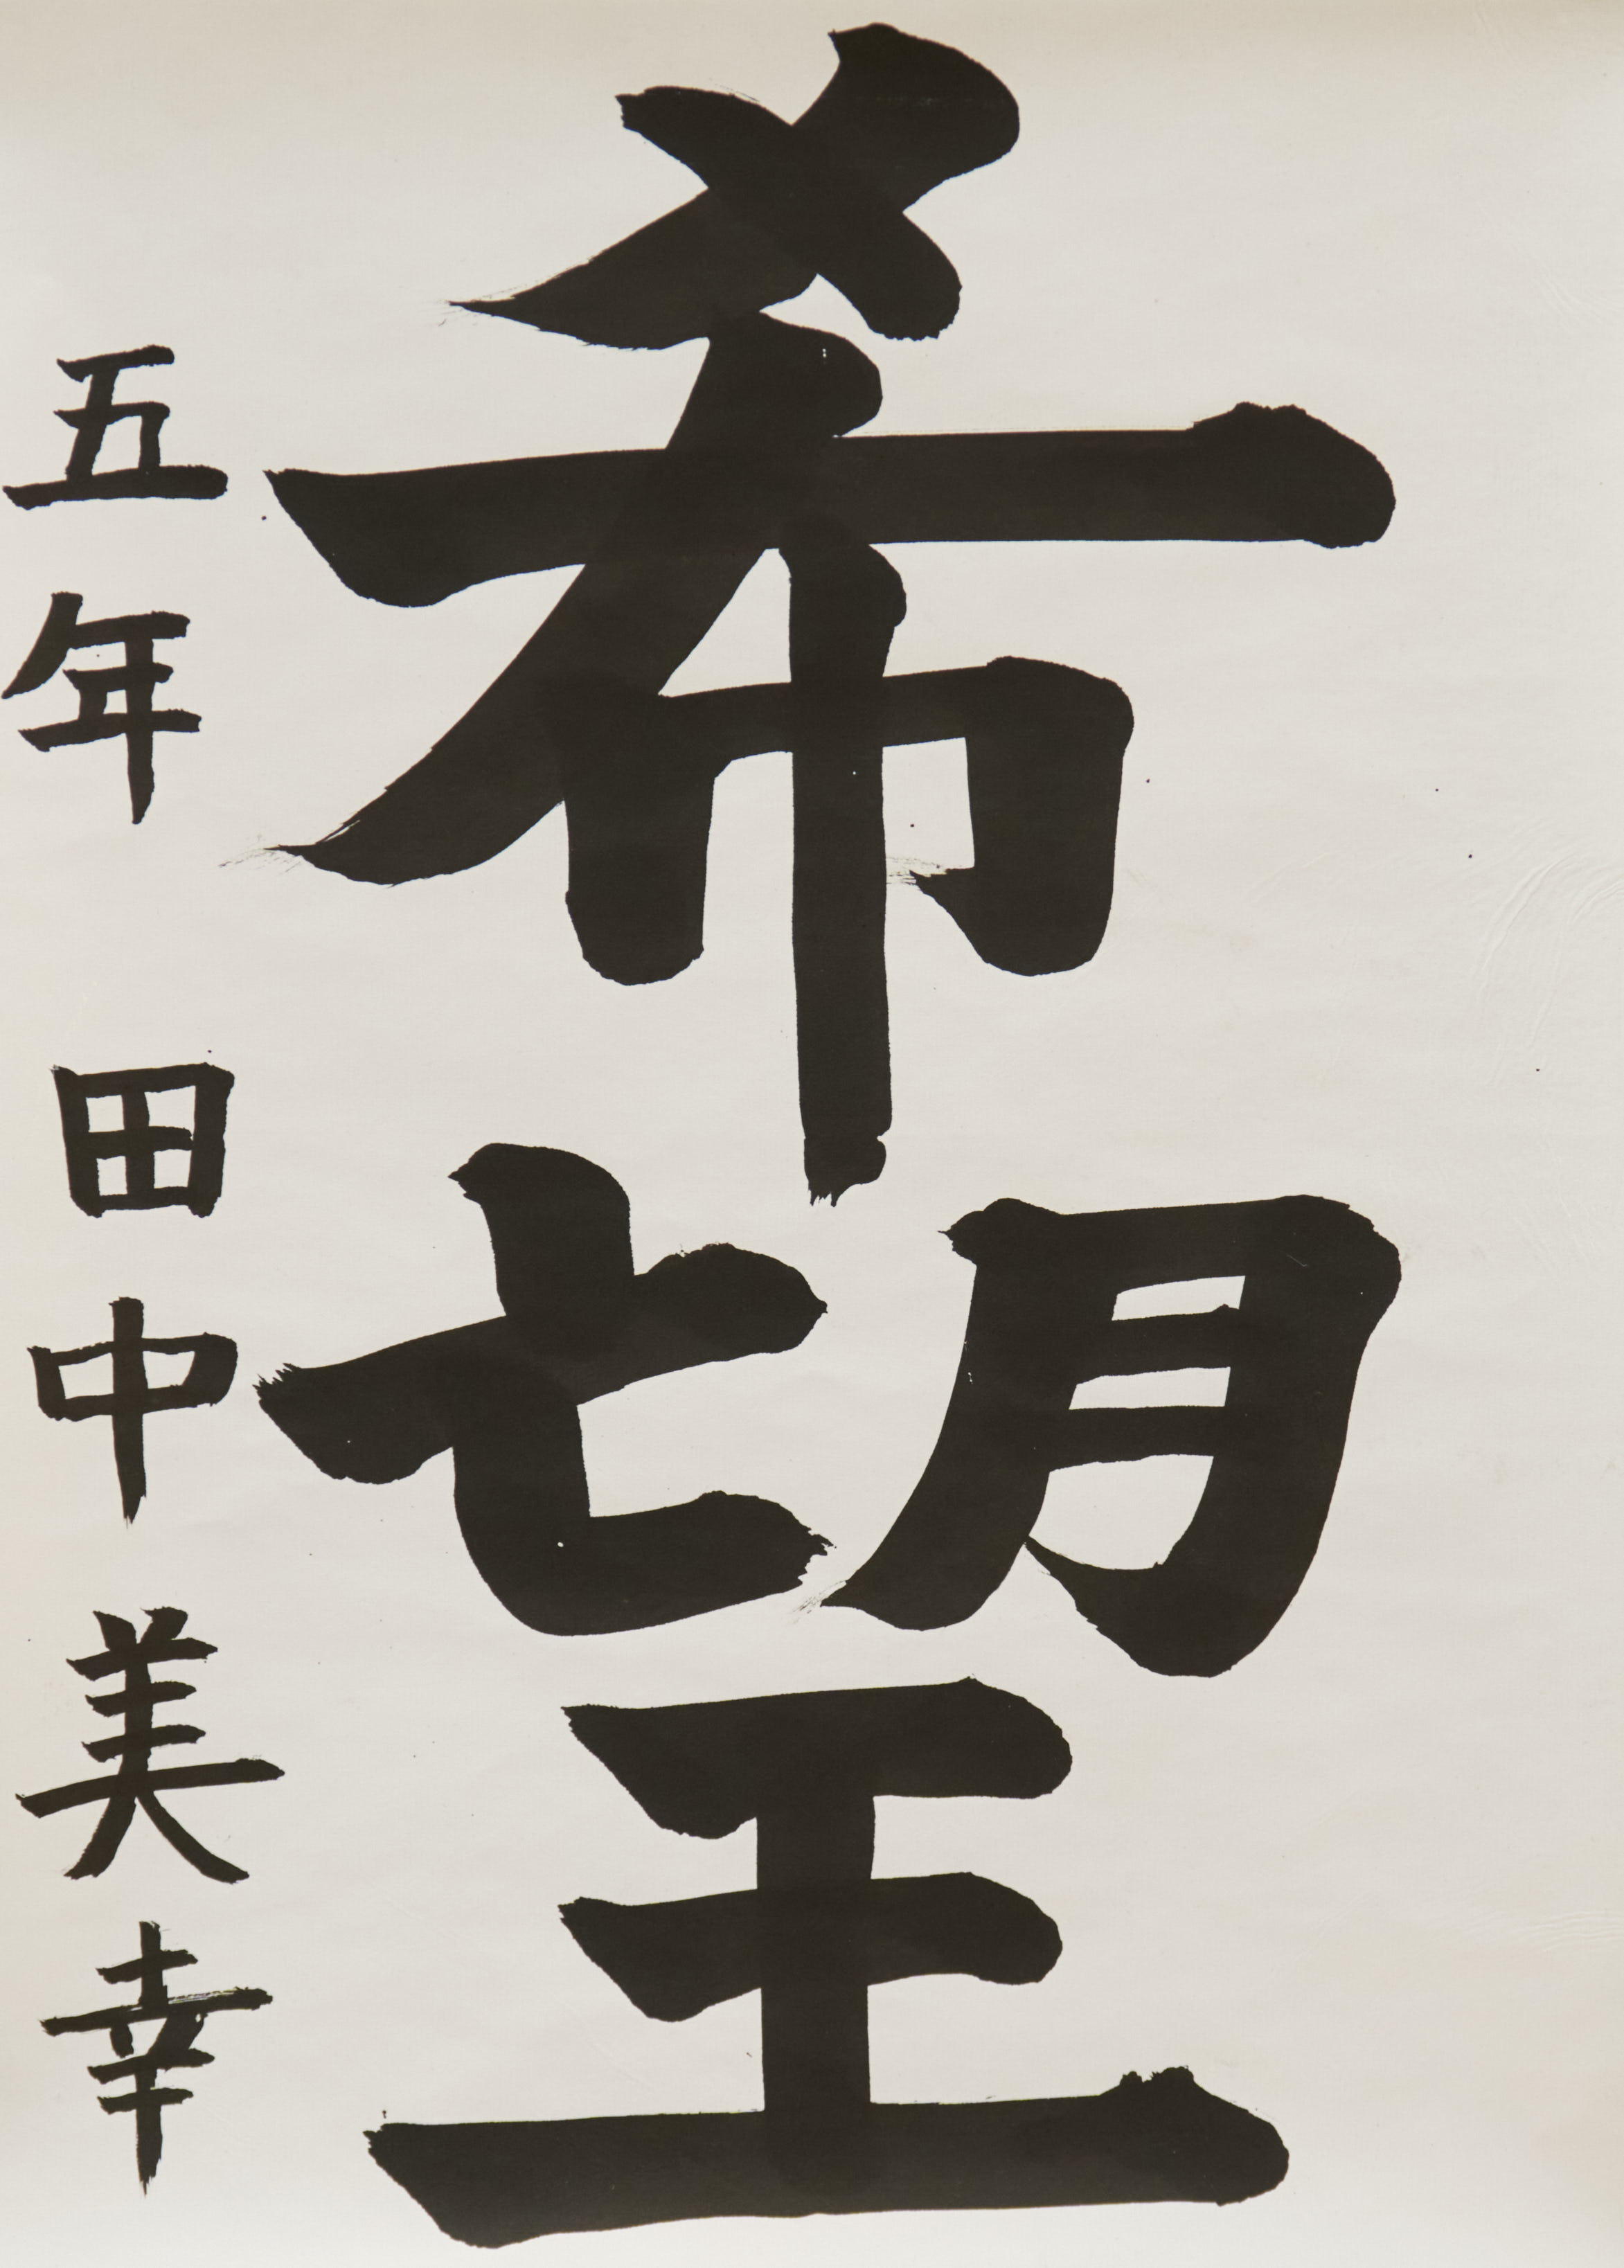 希望
五年 田中美幸